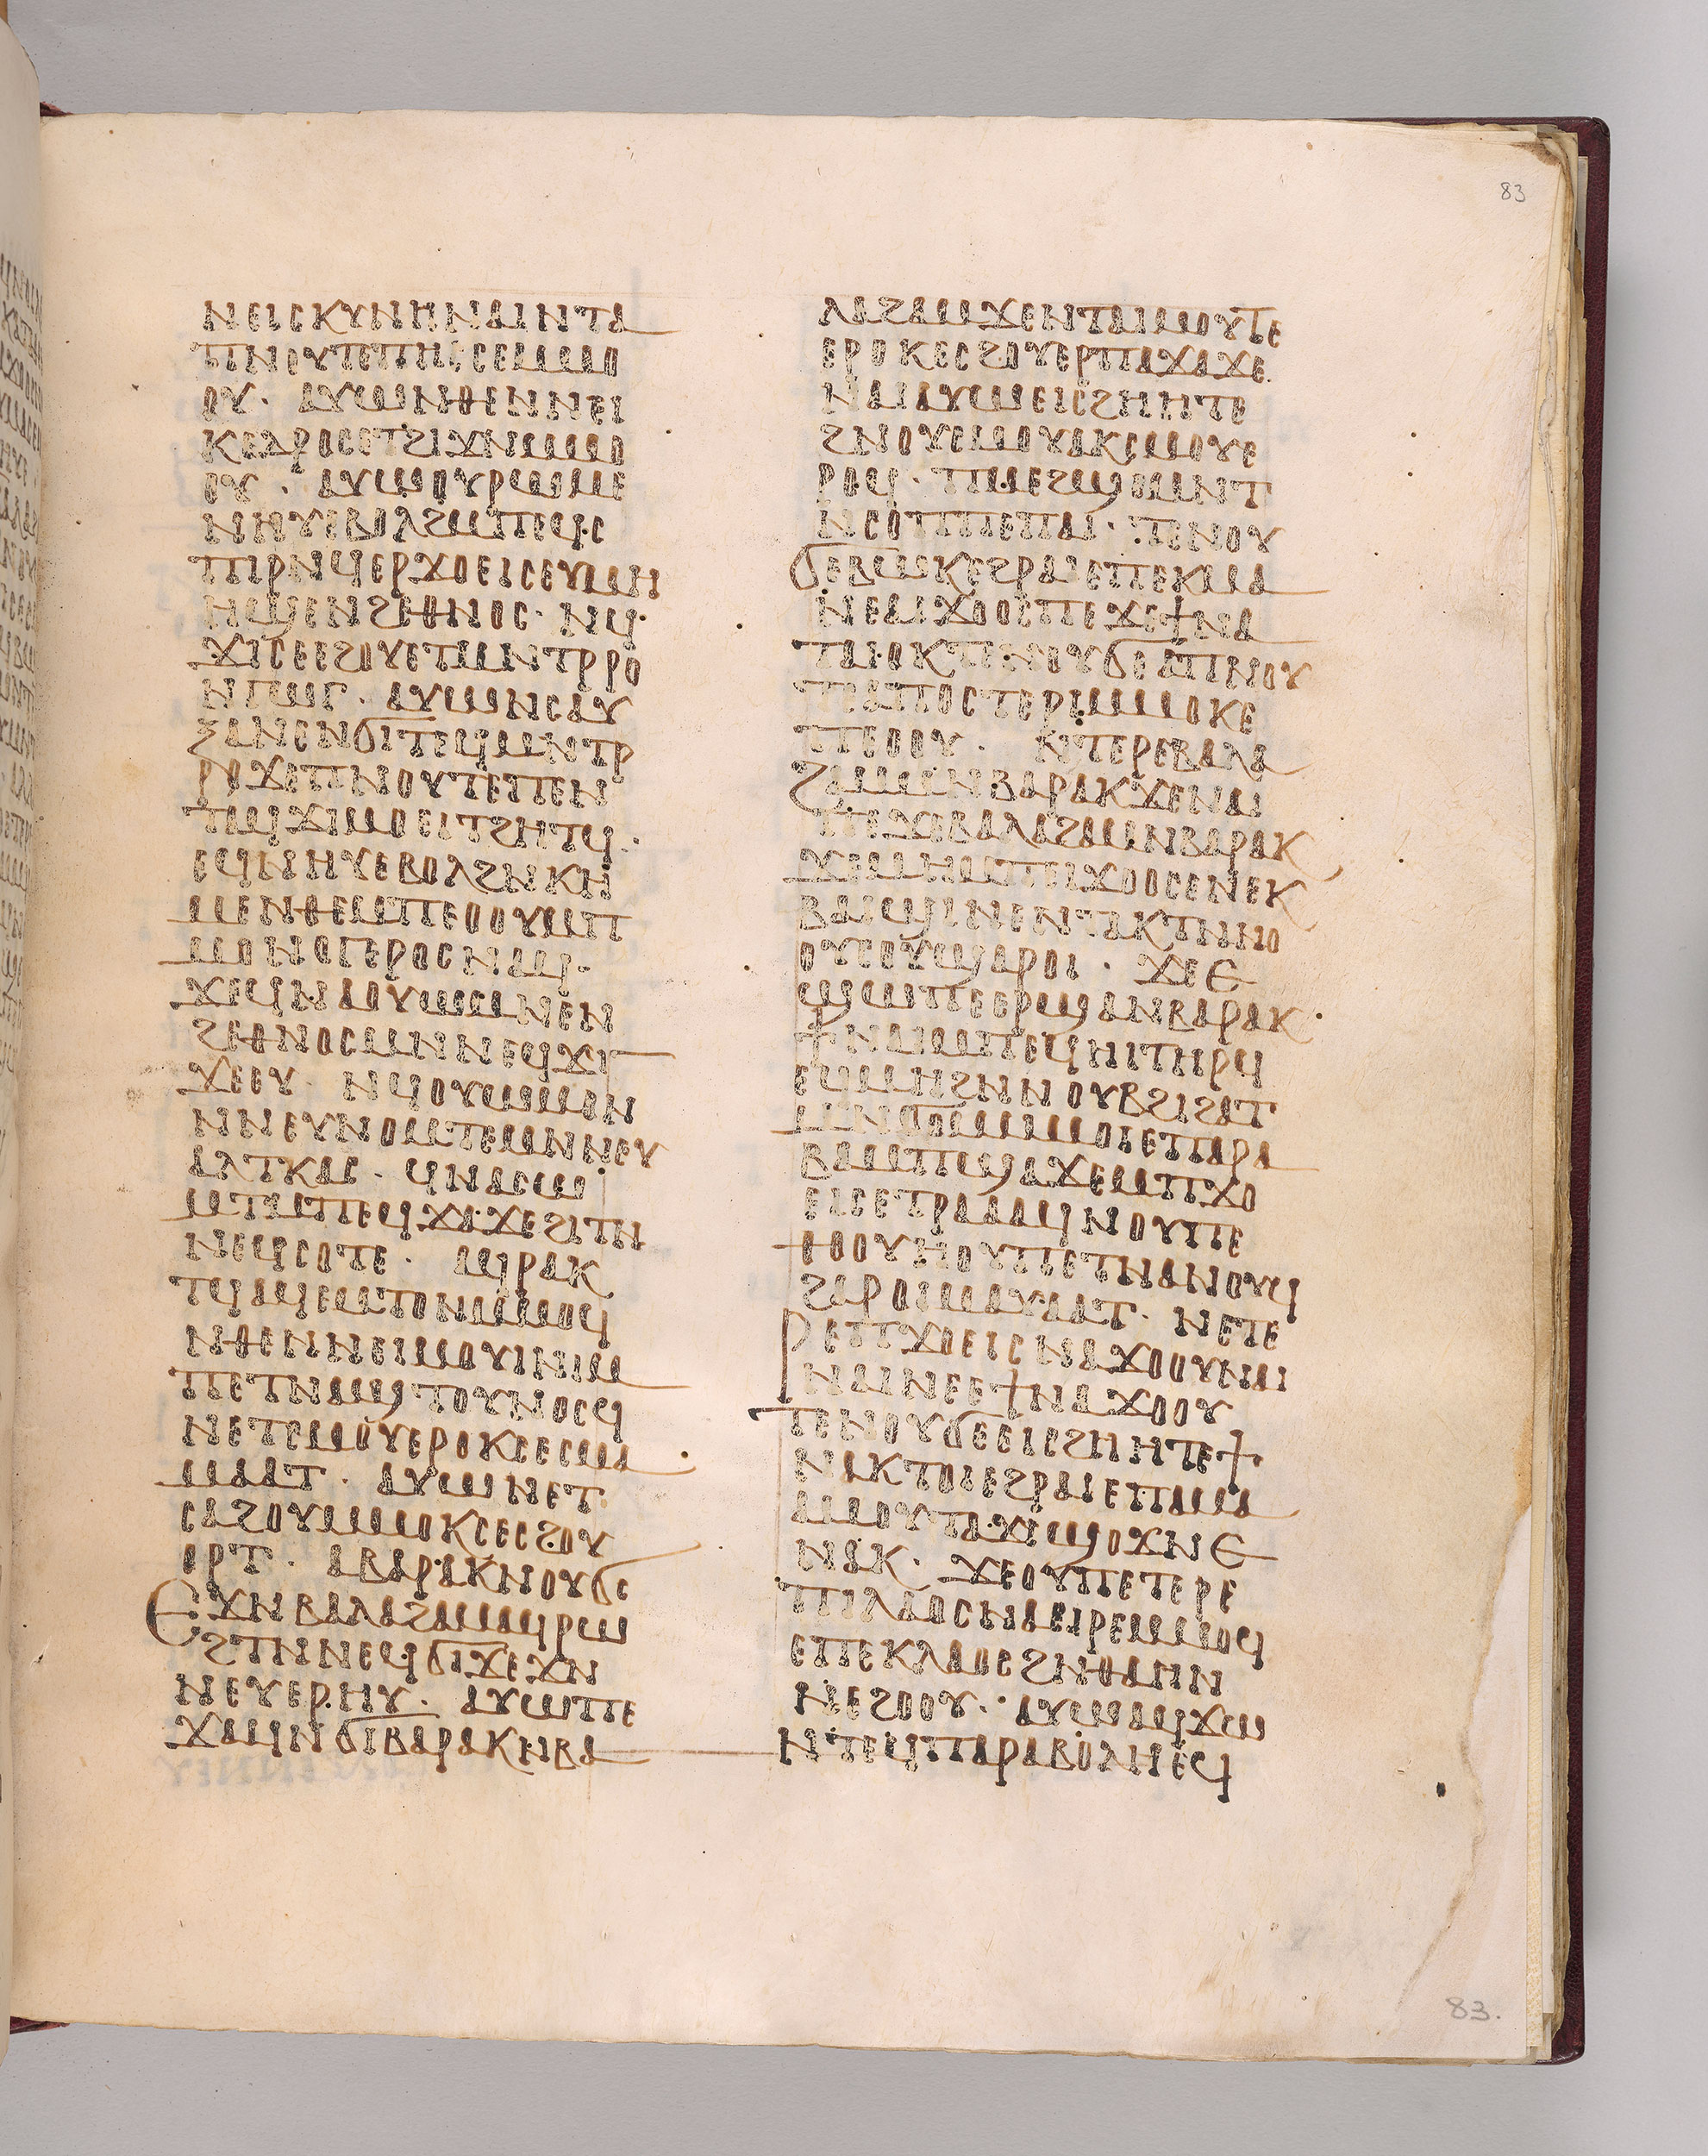 ⲛⲉⲓⲥⲕⲩⲛⲏⲛⲁⲓⲛⲧⲁ
ⲡⲛⲟⲩⲧⲉⲡⲏⲥⲥⲉⲙⲙⲟ
ⲟⲩ· ⲁⲩⲱⲛⲑⲉⲛⲛⲉⲓ
ⲕⲉⲇⲣⲟⲥⲉⲧϩⲓϫⲛⲙⲙⲟ
ⲟⲩ· ⲁⲩⲱⲟⲩⲣⲱⲙⲉ
ⲛⲏⲩⲉⲃⲟⲗϩⲙⲡⲉϥⲥ
ⲡⲓⲣⲛϥⲉⲣϫⲟⲉⲓⲥⲉⲩⲙⲏ
ⲏϣⲉⲛϩⲉⲑⲛⲟⲥ· ⲛϥ·
ϫⲓⲥⲉⲉϩⲟⲩⲉⲧⲙⲛⲧⲣⲣⲟ
ⲛⲅⲱⲅ· ⲁⲩⲱⲛⲥⲁⲩ
ⲝⲁⲛⲉⲛϭⲓⲧⲉϥⲙⲛⲧⲣ
ⲣⲟϫⲉⲡⲛⲟⲩⲧⲉⲡⲉⲛ
ⲧⲁϥϫⲓⲙⲟⲉⲓⲧϩⲏⲧϥ·
ⲉϥⲛⲏⲩⲉⲃⲟⲗϩⲛⲕⲏ
ⲙⲉⲛⲑⲉⲙⲡⲉⲟⲟⲩⲙⲡ
ⲙⲟⲛⲟⲅⲉⲣⲟⲥⲛⲁϥ·
ϫⲉϥⲛⲁⲟⲩⲱⲙⲛⲉⲛ
ϩⲉⲑⲛⲟⲥⲙⲛⲛⲉϥϫⲓ
ϫⲉⲉⲩ· ⲛϥⲟⲩⲱⲙⲟⲛ
ⲛⲛⲉⲩⲛⲟⲙⲧⲉⲙⲛⲛⲉⲩ
ⲁⲗⲧⲕⲁⲥ· ϥⲛⲁⲥⲱ
ⲙⲧⲙⲡⲉϥϫⲁϫⲉϩⲓⲧⲛ
ⲛⲉϥⲥⲟⲧⲉ· ⲁϥⲣⲁⲕ
ⲧϥⲁϥⲉⲙⲧⲟⲛⲙⲙⲟϥ
ⲛⲑⲉⲛⲛⲉⲓⲙⲟⲩⲓⲛⲓⲙ
ⲡⲉⲧⲛⲁϣⲧⲟⲩⲛⲟⲥϥ
ⲛⲉⲧⲥⲙⲟⲩⲉⲣⲟⲕⲥⲉⲥⲙⲁ
ⲙⲁⲁⲧ· ⲁⲩⲱⲛⲉⲧ
ⲥⲁϩⲟⲩⲙⲙⲟⲕⲥⲉⲥϩⲟⲩ
ⲟⲣⲧ· ⲁⲃⲁⲣⲁⲕⲛⲟⲩϭⲥ
ⲉϫⲛⲃⲁⲗⲁϩⲁⲙⲁϥⲣⲱ
ϩⲧⲛⲛⲉϥϭⲓϫⲉϫⲛ
ⲛⲉⲩⲉⲣⲏⲩ· ⲁⲩⲱⲡⲉ
ϫⲁϥⲛϭⲓⲃⲁⲣⲁⲕⲛⲃⲁ
ⲗⲁϩⲁⲙϫⲉⲛⲧⲁⲓⲙⲟⲩⲧⲉ
ⲉⲣⲟⲕⲉⲥϩⲟⲩⲉⲣⲡⲁϫⲁϫⲉ
ⲛⲁⲓⲁⲩⲱⲉⲓⲥϩⲏⲏⲧⲉ
ϩⲛⲟⲩⲥⲙⲟⲩⲁⲕⲥⲙⲟⲩⲉ
ⲣⲟϥ· ⲡⲙⲉϩϣⲟⲙⲛⲧ
ⲛⲥⲟⲡⲡⲉⲡⲁⲓ· ⲧⲉⲛⲟⲩ
ϭⲉⲃⲱⲕⲉϩⲣⲁⲓⲉⲡⲉⲕⲙⲁ
ⲛⲉⲁⲓϫⲟⲟⲥⲡⲉϫⲉϯⲛⲁ
ⲧⲁⲓⲟⲕⲧⲉⲛⲟⲩϭⲉⲁⲡⲛⲟⲩ
ⲧⲉⲁⲡⲟⲥⲧⲉⲣⲓⲙⲙⲟⲕⲉ
ⲡⲉⲟⲟⲩ· ⲛⲧⲉⲣⲉⲃⲁⲗⲁ
ϩⲁⲙⲙⲛⲃⲁⲣⲁⲕϫⲉⲛⲁⲓ
ⲡⲉϫⲉⲃⲁⲗⲁϩⲁⲙⲛⲃⲁⲣⲁⲕ
ϫⲉⲙⲏⲙⲡⲓϫⲟⲟⲥⲉⲛⲉⲕ
ⲃⲁⲓϣⲓⲛⲉⲛⲧⲁⲕⲧⲛⲛⲟ
ⲟⲩⲥⲟⲩϣⲁⲣⲟⲓ· ϫⲉⲉ
ϣⲱⲡⲉⲉⲣϣⲁⲛⲃⲁⲣⲁⲕ·
ϯⲛⲁⲓⲙⲡⲉϥⲏⲓⲧⲏⲣϥ
ⲉϥⲙⲏϩⲛⲛⲟⲩⲃϩⲓϩⲁⲧ
ⲙⲛϭⲟⲙⲙⲙⲟⲓⲉⲡⲁⲣⲁ
ⲃⲁⲙⲡϣⲁϫⲉⲙⲡϫⲟ
ⲉⲓⲥⲉⲧⲣⲁⲁⲁϥⲛⲟⲩⲡⲉ
ⲑⲟⲟⲩⲏⲟⲩⲡⲉⲧⲛⲁⲛⲟⲩϥ
ϩⲁⲣⲟⲓⲙⲁⲩⲁⲁⲧ· ⲛⲉⲧⲉ
ⲣⲉⲡϫⲟⲉⲓⲥⲛⲁϫⲟⲟⲩⲛⲁⲓ
ⲛⲁⲓⲛⲉⲉϯⲛⲁϫⲟⲟⲩ
ⲧⲉⲛⲟⲩϭⲉⲉⲓⲥϩⲏⲏⲧⲉϯ
ⲛⲁⲕⲧⲟⲓⲉϩⲣⲁⲓⲉⲡⲁⲙⲁ
ⲁⲙⲟⲩⲧⲁϫⲓϣⲟϫⲛⲉ
ⲛⲁⲕ· ϫⲉⲟⲩⲡⲉⲧⲉⲣⲉ
ⲡⲓⲗⲁⲟⲥⲛⲁⲉⲓⲣⲉⲙⲙⲟϥ
ⲉⲡⲉⲕⲗⲁⲟⲥϩⲛⲑⲁⲏⲛ
ⲛⲉϩⲟⲟⲩ· ⲁⲩⲱⲁϥϫⲱ
ⲛⲧⲉϥⲡⲁⲣⲁⲃⲟⲗⲏⲉϥ
83
83.